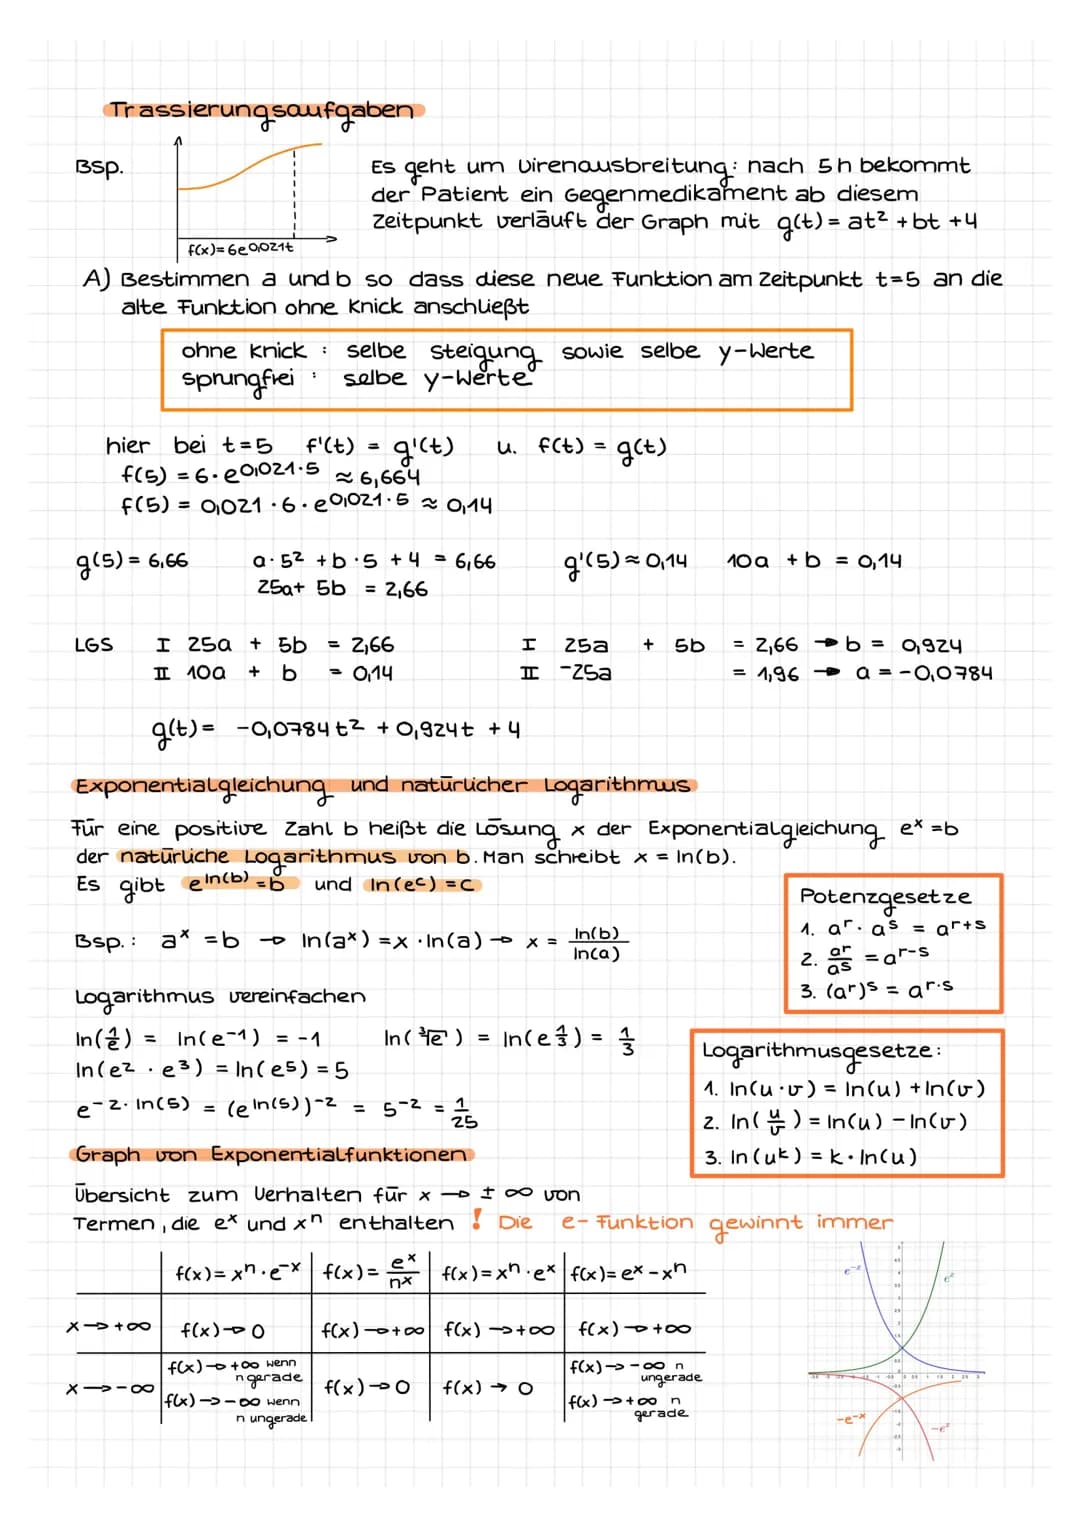 Trassierungsaufgaben
Bsp.
f(x)=6e^0,021t
Es geht um Virenausbreitung: nach 5h bekommt
der Patient ein Gegenmedikament ab diesem
Zeitpunkt verläuft der Graph mit g(t) = at² + bt + 4
A) Bestimmen a und b so dass diese neue Funktion am Zeitpunkt t=5 an die
alte Funktion ohne Knick anschließt
ohne Knick : selbe Steigung sowie selbe y-Werte
sprungfrei : selbe y-Werte
hier bei t=5 f'(t) = g'(t) u. f(t) = g(t)
f(5) = 6·e^0,021·5 ≈ 6,664
f(5) = 0,021 · 6 · e^0,021·5 ≈ 0,14
g(5) = 6,66 a·5² + b·5 + 4 = 6,66 g'(5) ≈ 0,14 10a + b = 0,14
25a + 5b = 2,66
LGS I 25a + 5b = 2,66 I 25a + 5b = 2,66 → b = 0,924
II 10a + b = 0,14 II -25a = 1,96 → a = -0,0784
g(t) = -0,0784t² + 0,924t + 4
Exponentialgleichung und natürlicher Logarithmus
Für eine positive Zahl b heißt die Lösung x der Exponentialgleichung e^x = b
der natürliche Logarithmus von b. Man schreibt x = ln(b).
Es gibt e^ln(b) = b und ln(e^c) = c
Bsp.: a^x = b → ln(a^x) = x · ln(a) → x = ln(b)/ln(a)
Potenzgesetze
1. a^r · a^s = a^r+s
2. a^r/a^s = a^r-s
3. (a^r)^s = a^r·s
Logarithmus vereinfachen
ln(1/e) = ln(e^-1) = -1 ln(³√e) = ln(e^1/3) = 1/3
ln(e² · e³) = ln(e^5) = 5
e^-2·ln(5) = (e^ln(5))^-2 = 5^-2 = 1/25
Logarithmusgesetze:
1. ln(u·v) = ln(u) + ln(v)
2. ln(u/v) = ln(u) - ln(v)
3. ln(u^k) = k · ln(u)
Graph von Exponentialfunktionen
Übersicht zum Verhalten für x → ± ∞ von
Termen, die e^x und x^n enthalten ! Die e-Funktion gewinnt immer
f(x) = x^n·e^-x f(x) = e^x/n^x f(x) = x^n·e^x f(x) = e^x - x^n
x → +∞ f(x) → 0 f(x) → +∞ f(x) → +∞ f(x) → +∞
x → -∞ f(x) → +∞ wenn n gerade f(x) → -∞ wenn n ungerade f(x) → 0 f(x) → 0 f(x) → -∞ n ungerade f(x) → +∞ n gerade
e^-x e^x
-e^-x -e^x